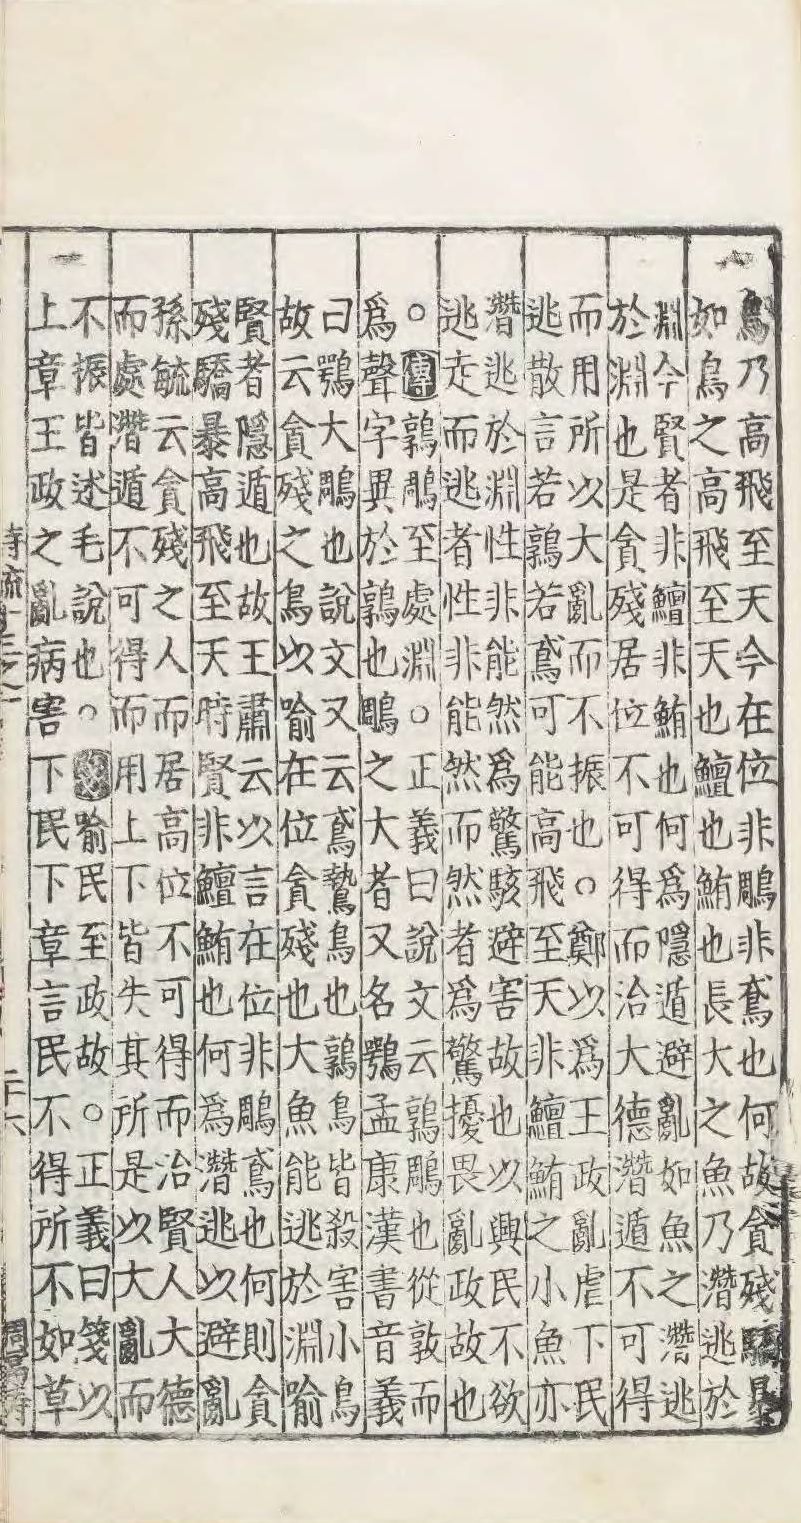 鳥乃高飛至天今在位非鵰非鳶也何故貪殘驕暴
如鳥之高飛至天也鱣也鮪也長大之魚乃潛逃於
淵今賢者非鱣非鮪也何為隱遁避亂如魚之潛逃
於淵也是貪殘居位不可得而治大德潛遁不可得
而用所以大亂而不振也○鄭以為王政亂虐下民
逃散言若鶉若鳶可能高飛至天非鱣鮪之小魚亦
潛逃於淵性非能然為驚駭避害故也以興民不欲
逃走而逃者性非能然而然者為驚擾畏亂政故也
○傳鶉鵰至處淵○正義曰說文云鶉鵰也從敦而
為聲字異於鶉也鵰之大者又名鶚孟康漢書音義
曰鶚大鵰也說文又云鳶鷙鳥也鶉鳥皆殺害小鳥
故云貪殘之鳥以喻在位貪殘也大魚能逃於淵喻
賢者隱遁也故王肅云以言在位非鵰鳶也何則貪
殘驕暴高飛至天時賢非鱣鮪也何為潛逃以避亂
孫毓云貪殘之人而居高位不可得而治賢人大德
而處潛遁不可得而用上下皆失其所是以大亂而
不振皆述毛說也○喻民至政故○正義曰箋以
上章王政之亂病害下民下章言民不得所不如草